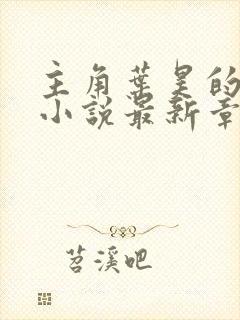 主角叶昊的
小说最新章
苕溪吧